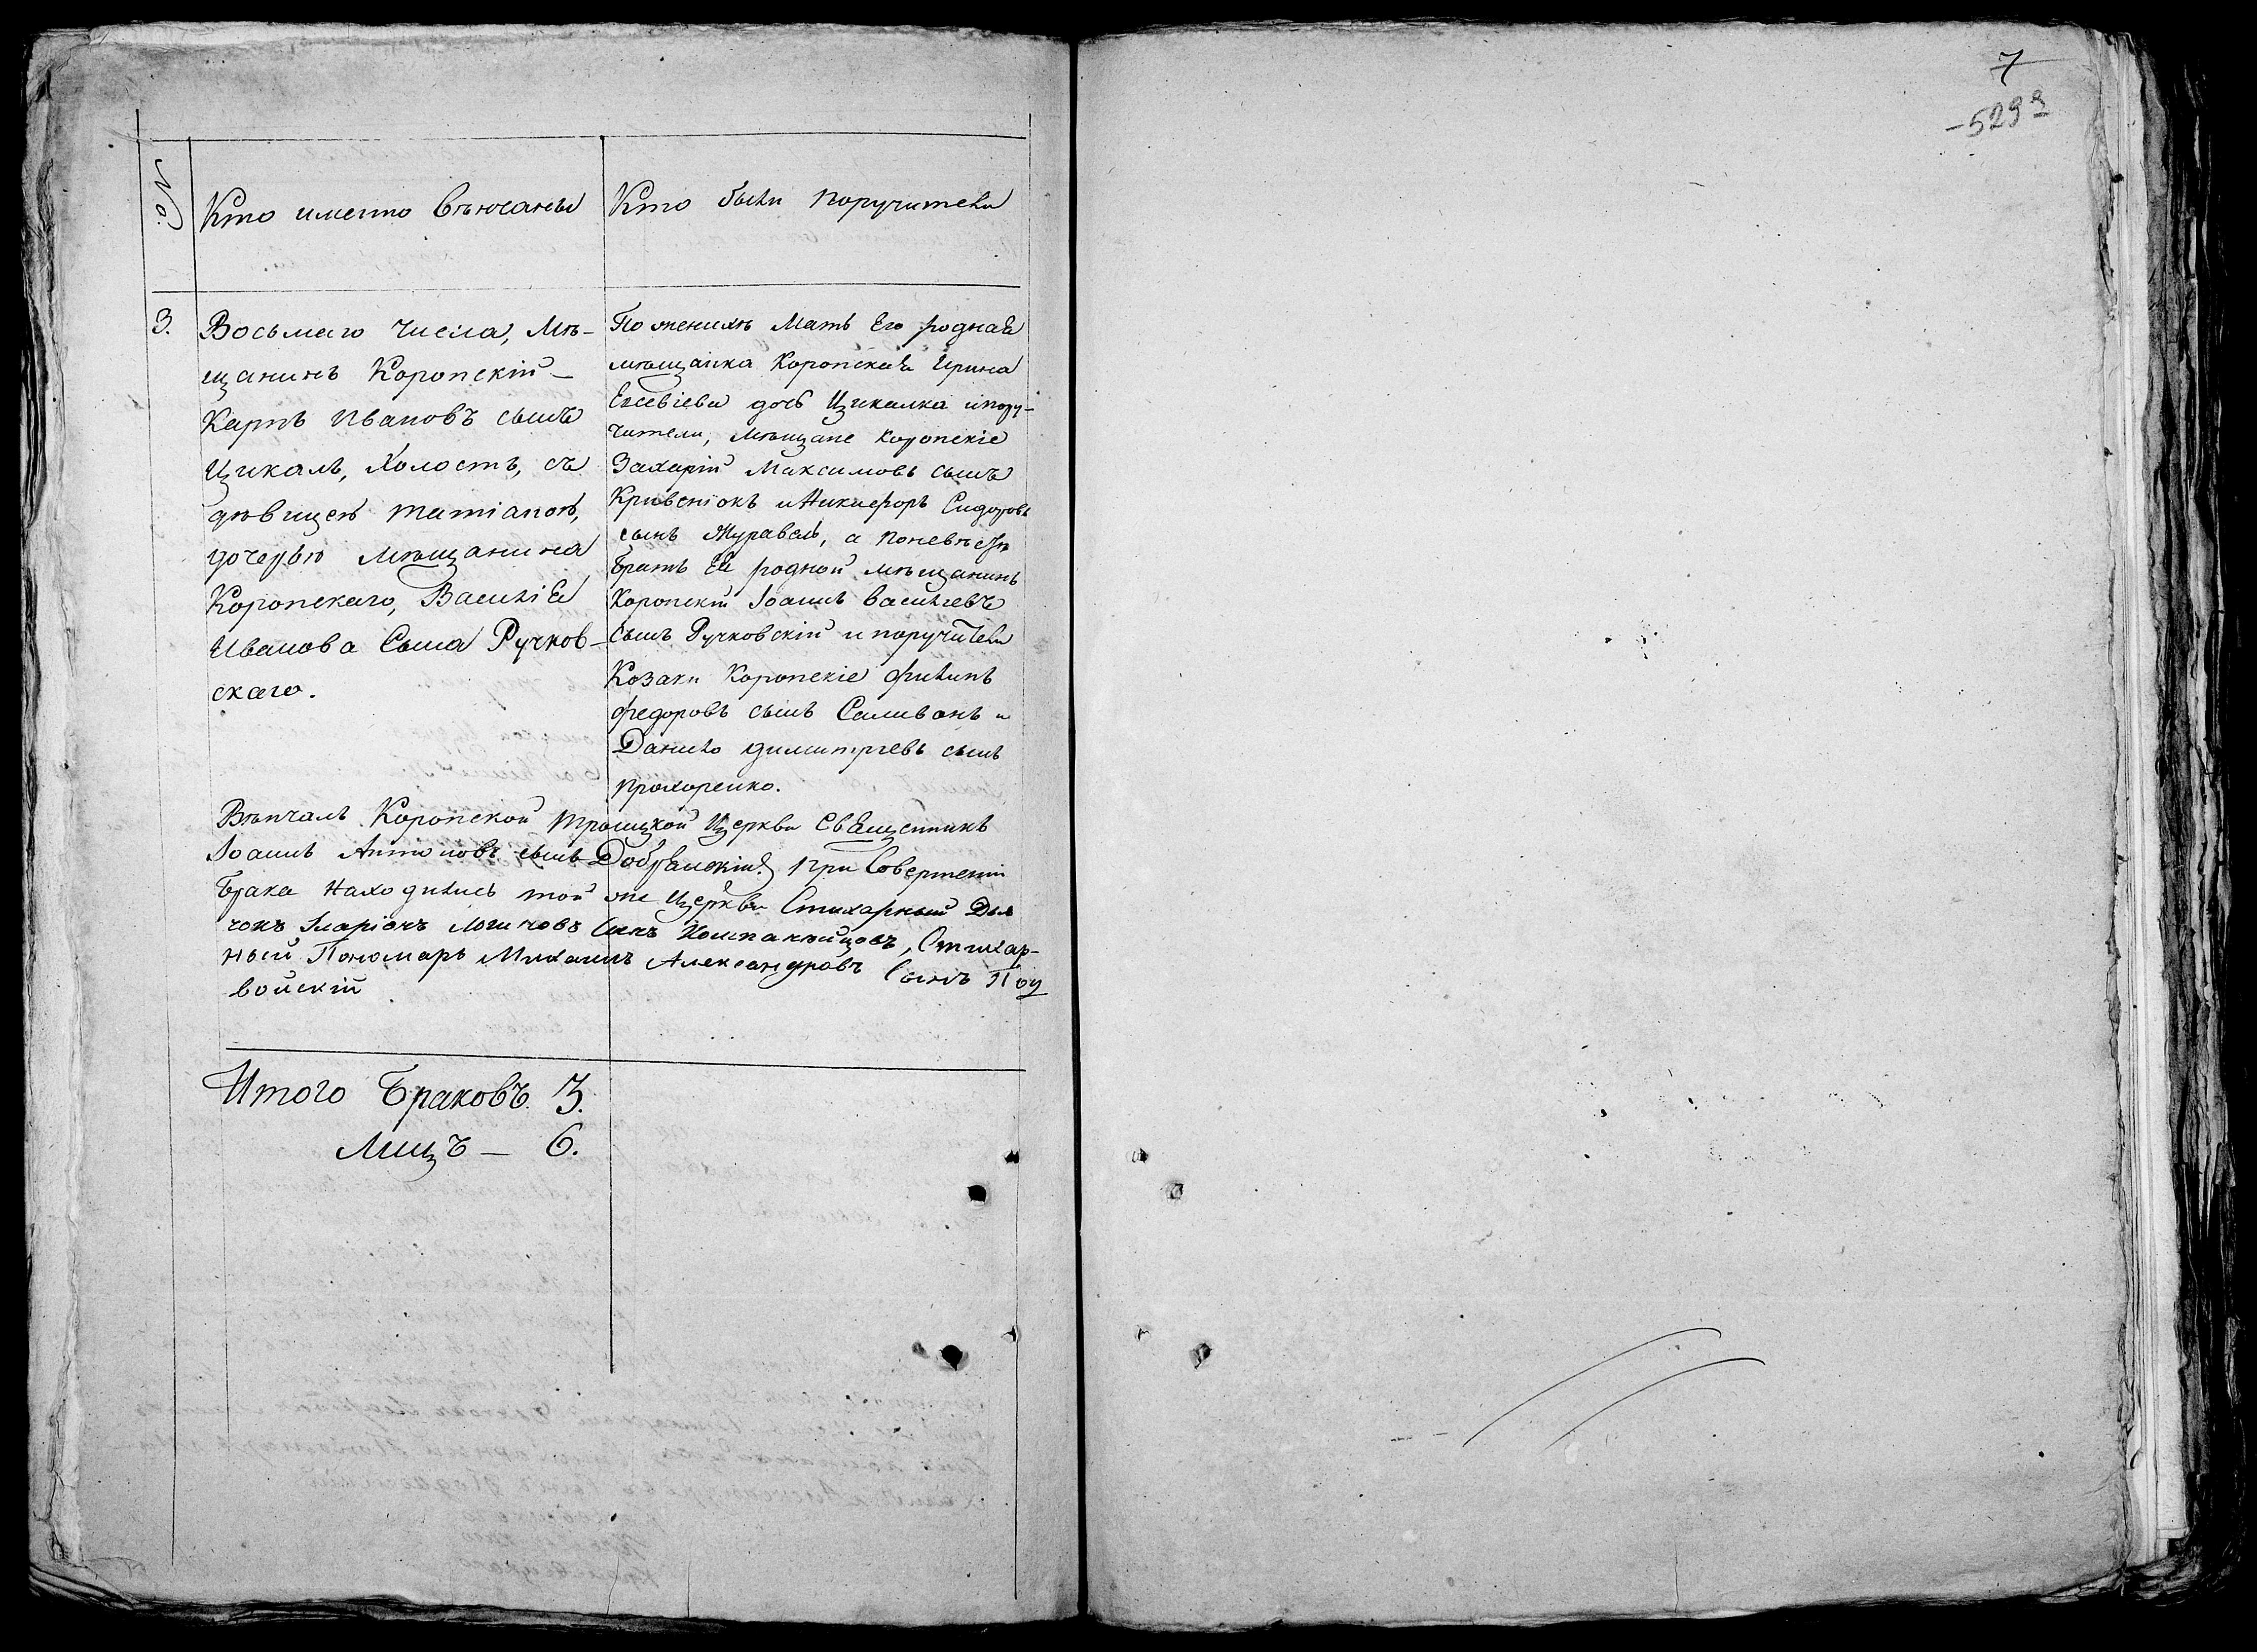 7
529
№.
Кто именно вѣнчаны
Кто были поручители
3.
Восьмаго числа, Мѣ-
щанинъ Коропскій
Карпъ Ивановъ сынъ
Цикалъ, Холостъ, съ
дѣвицею Татіаною,
дочерью мѣщанина
Коропскаго, Василія
Иванова Сына Ручков-
скаго.
По женихѣ Мать Его родная
мѣщанка Коропская Ирина
Евсевіева дочь Цикалка и пору-
чители, мѣщане коропскіе
Захарій Максимовъ сынъ
Кривенокъ и Никифоръ Сидоровъ
сынъ Журавель, а по невѣсте
Братъ Ея родной мѣщанинъ
Коропскій Іоаннъ Васильевъ
сынъ Ручковскій и поручители
Козаки Коропскіе Филипъ
Федоровъ сынъ Селивонъ и
Данило Димитріевъ сынъ
Прохоренко.
Вѣнчалъ Коропской Троицкой Церкви Священникъ
Іоаннъ Антоновъ сынъ При Совершеніи
Брака находились той же Церкви Стихарный Дья
чокъ Іларіонъ Логиновъ Сынъ Компанѣйцовъ, Стихар-
ный Пономарь Михаилъ Александровъ Сынъ Под
войскій
Итого Браковъ. 3.
Лицъ — 6.